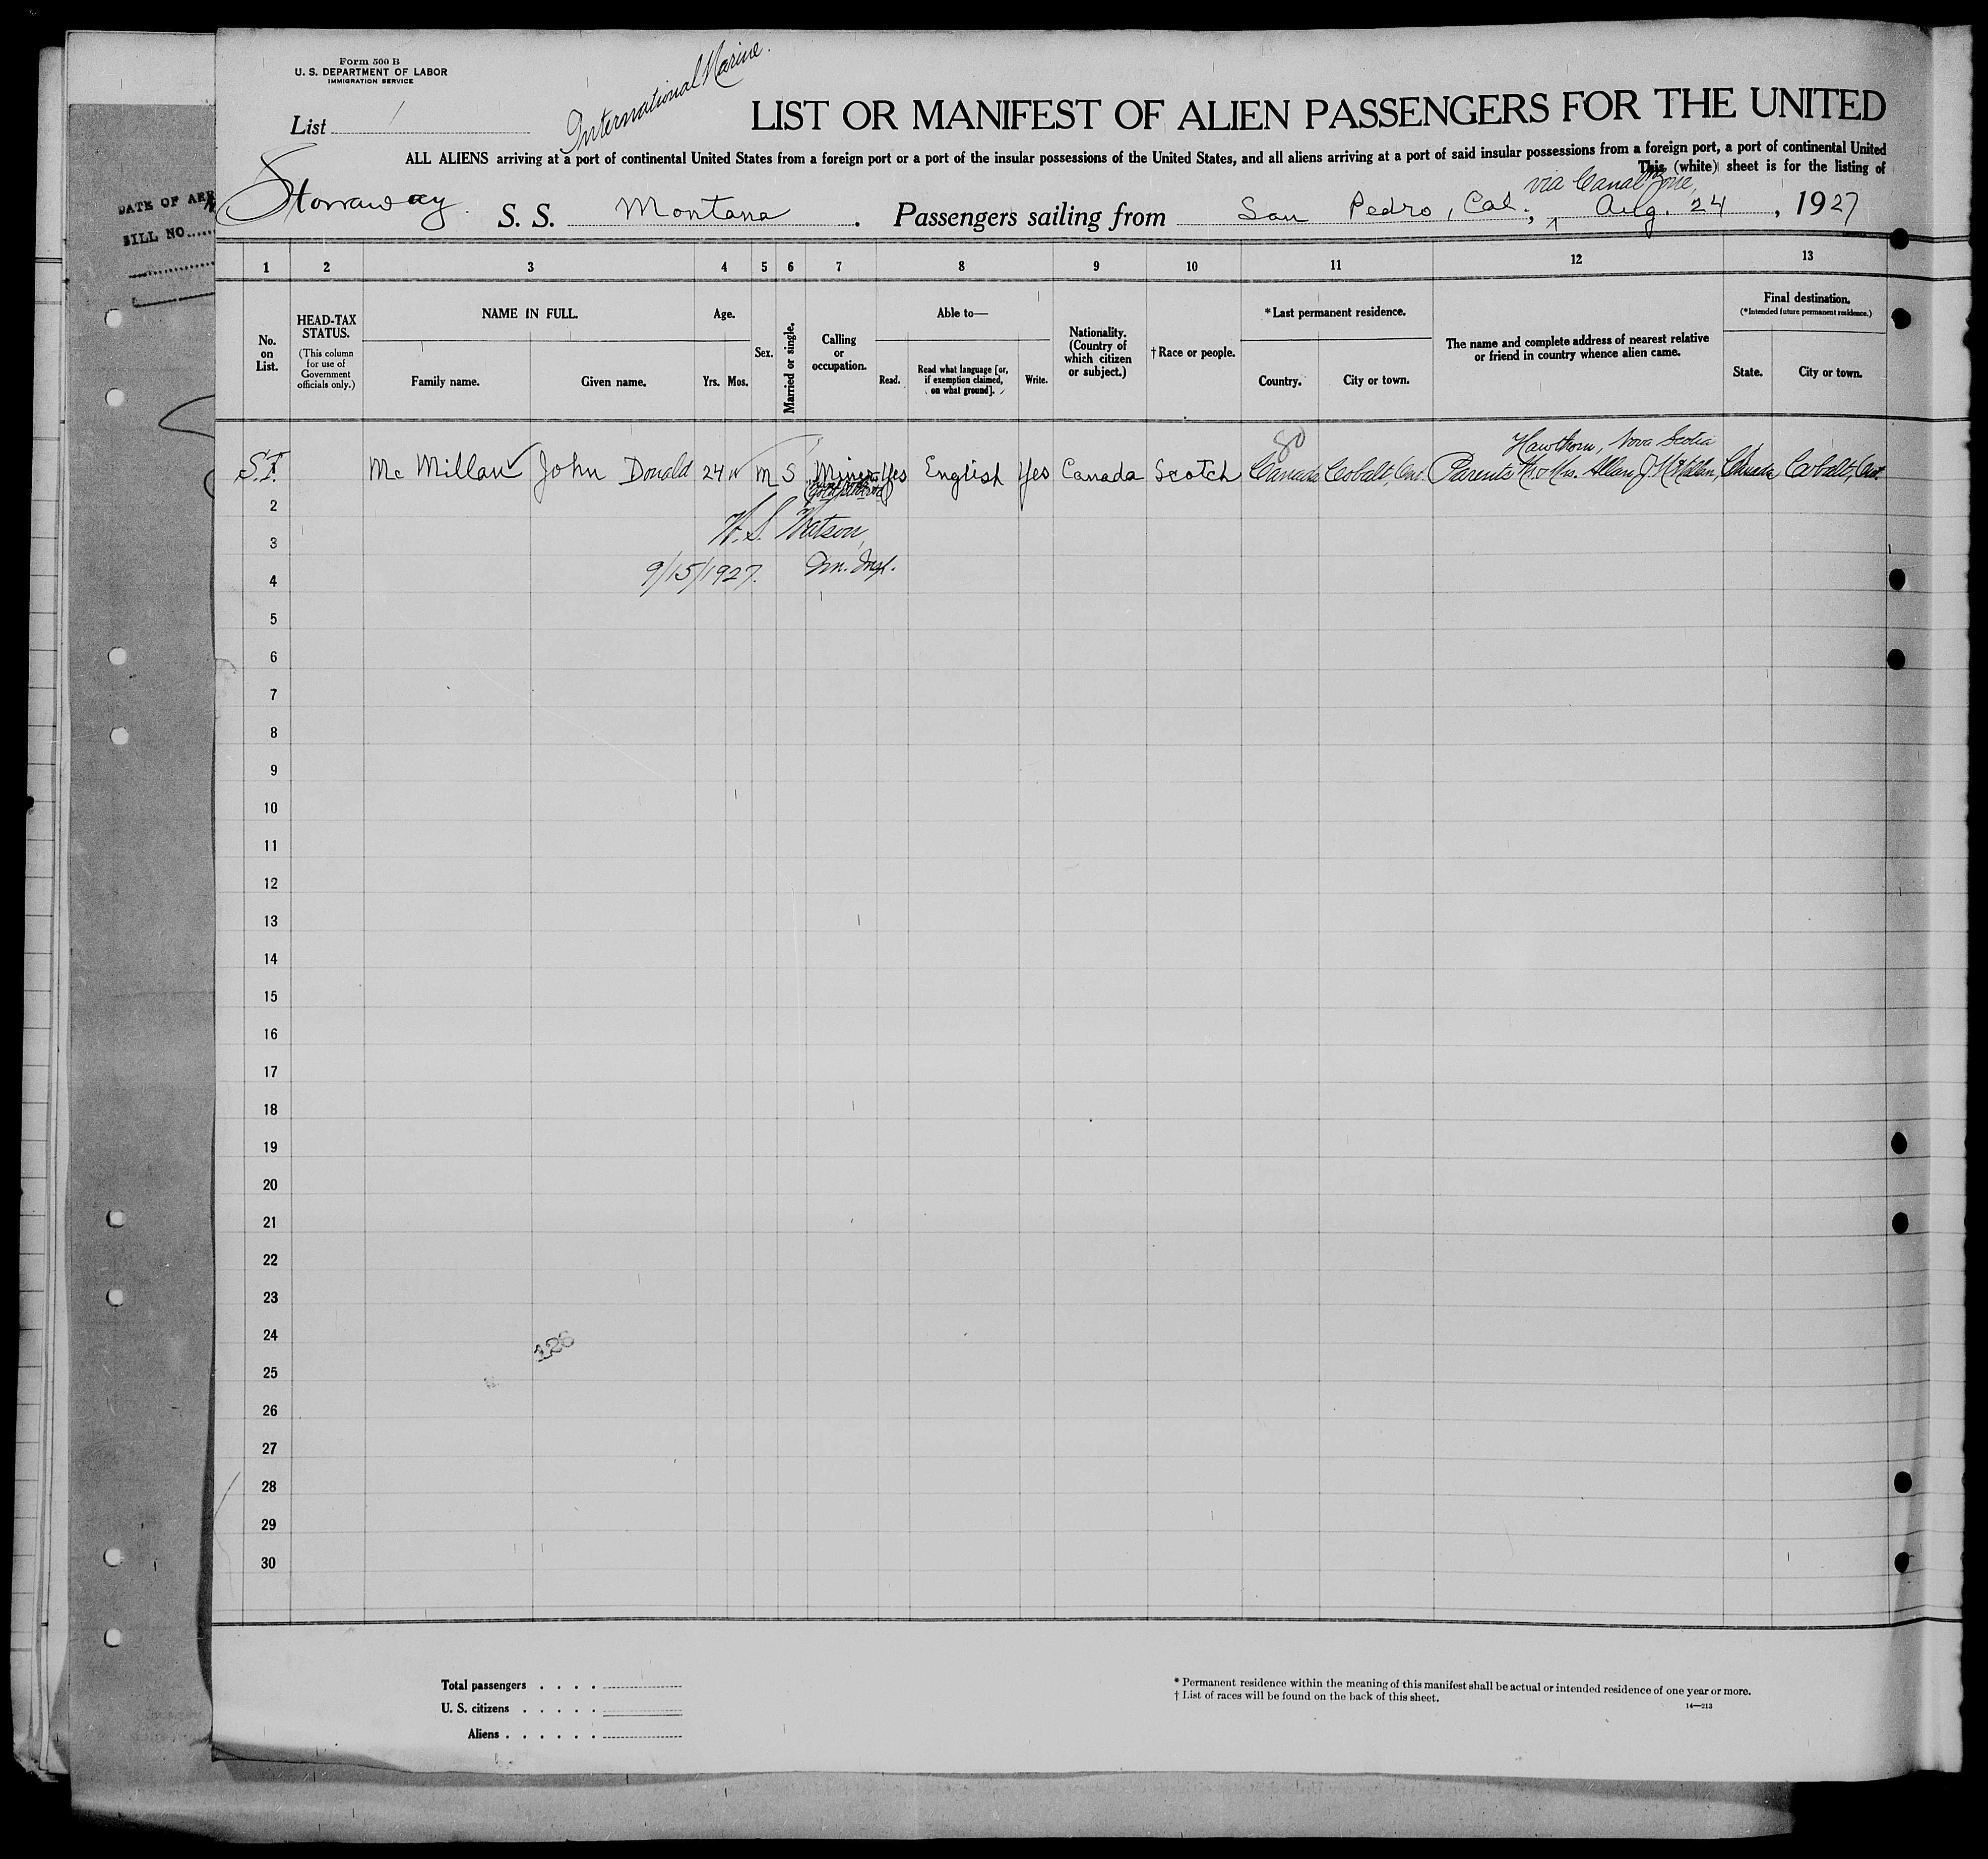 Form 500 B
U. S. DEPARTMENT OF LABOR
IMMIGRATION SERVICE
International Marine.
List 1
LIST OR MANIFEST OF ALIEN PASSENGERS FOR THE UNITED
ALL ALIENS arriving at a port of continental United States from a foreign port or a port of the insular possessions of the United States, and all aliens arriving at a port of said insular possessions from a foreign port, a port of continental United
This (white) sheet is for the listing of
DATE OF ARR
BILL NO.
via Canal Zone,
Stowaway. S. S. Montana. Passengers sailing from San Pedro, Cal., Aug. 24, 1927
1 2 3 4 5 6 7 8 9 10 11 12 13
No. on List.
HEAD-TAX STATUS.
(This column for use of Government officials only.)
NAME IN FULL.
Family name.
Given name.
Age.
Yrs. Mos.
Sex.
Married or single.
Calling or occupation.
Able to—
Read.
Read what language [or, if exemption claimed, on what ground].
Write.
Nationality. (Country of which citizen or subject.)
† Race or people.
*Last permanent residence.
Country.
City or town.
The name and complete address of nearest relative or friend in country whence alien came.
Final destination.
(*Intended future permanent residence.)
State.
City or town.
80
Hawthorn, Nova Scotia
S.I. McMillan John Donald 24 M S Miner Yes English Yes Canada Scotch Canada Cobalt, Ont. Parents Mr. & Mrs. Allan J. McMillan, Canada Cobalt, Ont.
2
W. S. Watson,
3
9/15/1927. Im. Insp.
4
5
6
7
8
9
10
11
12
13
14
15
16
17
18
19
20
21
22
23
24
126
25
26
27
28
29
30
Total passengers . . . .
U. S. citizens . . . . .
Aliens . . . . . .
* Permanent residence within the meaning of this manifest shall be actual or intended residence of one year or more.
† List of races will be found on the back of this sheet.
14—213